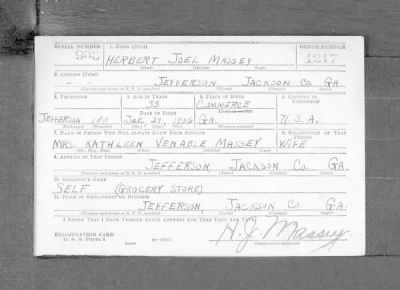 SERIAL NUMBER 1. NAME (Print) ORDER NUMBER
HERBERT JOEL MASSEY 1217
2. ADDRESS (Print)
JEFFERSON JACKSON CO. GA.
3. TELEPHONE 4. AGE IN YEARS 5. PLACE OF BIRTH 6. COUNTRY OF CITIZENSHIP
33 COMMERCE
DATE OF BIRTH
JEFFERSON DEC 24, 1906 GA. U.S.A.
7. NAME OF PERSON WHO WILL ALWAYS KNOW YOUR ADDRESS 8. RELATIONSHIP OF THAT PERSON
MRS. KATHLEEN VENABLE MASSEY WIFE
9. ADDRESS OF THAT PERSON
JEFFERSON JACKSON CO. GA.
10. EMPLOYER'S NAME
SELF (GROCERY STORE)
11. PLACE OF EMPLOYMENT OR BUSINESS
JEFFERSON, JACKSON CO. GA.
I AFFIRM THAT I HAVE VERIFIED ABOVE ANSWERS AND THAT THEY ARE TRUE.
REGISTRATION CARD
D. S. S. FORM 1
H. J. Massey